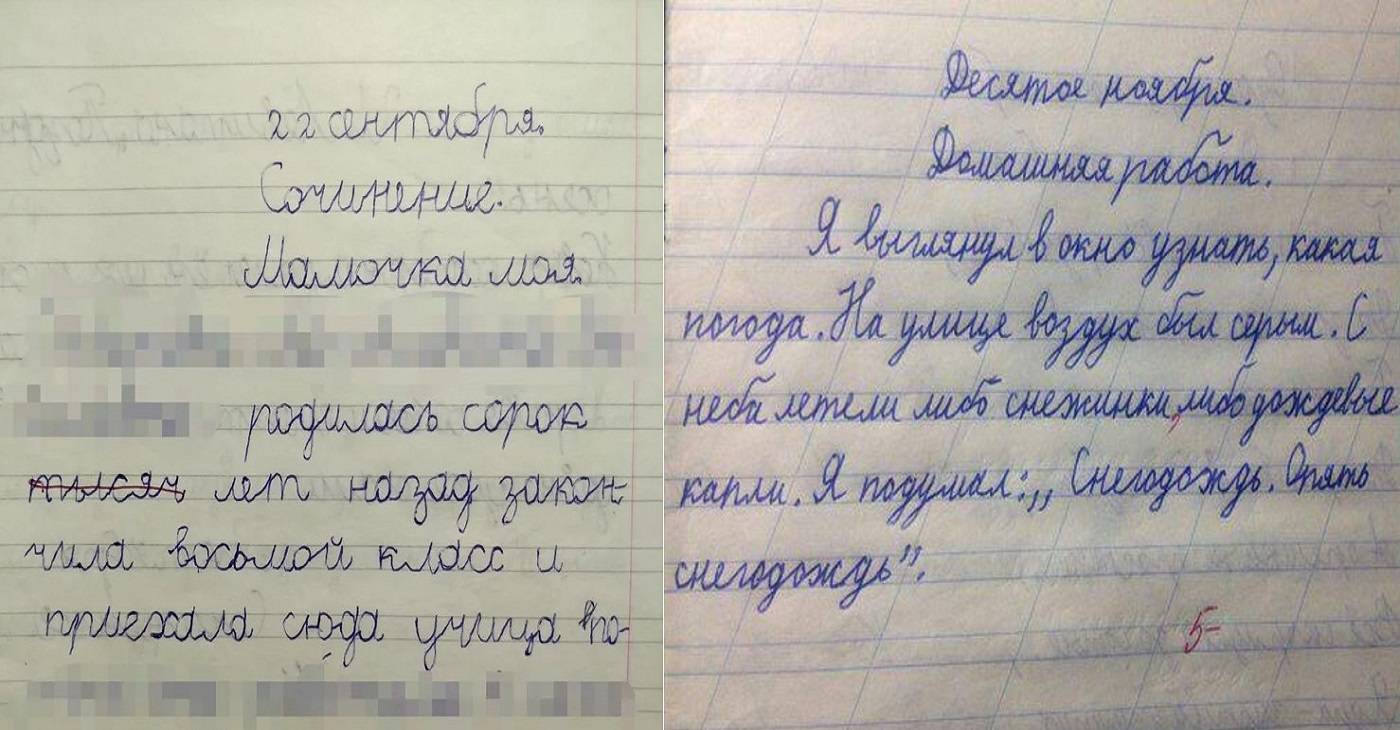 22 сентября.
Сочинение.
Мамочка моя.
родилась сорок
тысяч лет назад закон-
чила восьмой класс и
приехала сюда учица впо-
Десятое ноября.
Домашняя работа.
Я выглянул в окно узнать, какая
погода. На улице воздух был серым. С
неба летели либо снежинки, либо дождевые
капли. Я подумал: „ Снегодождь. Опять
снегодождь”.
5-